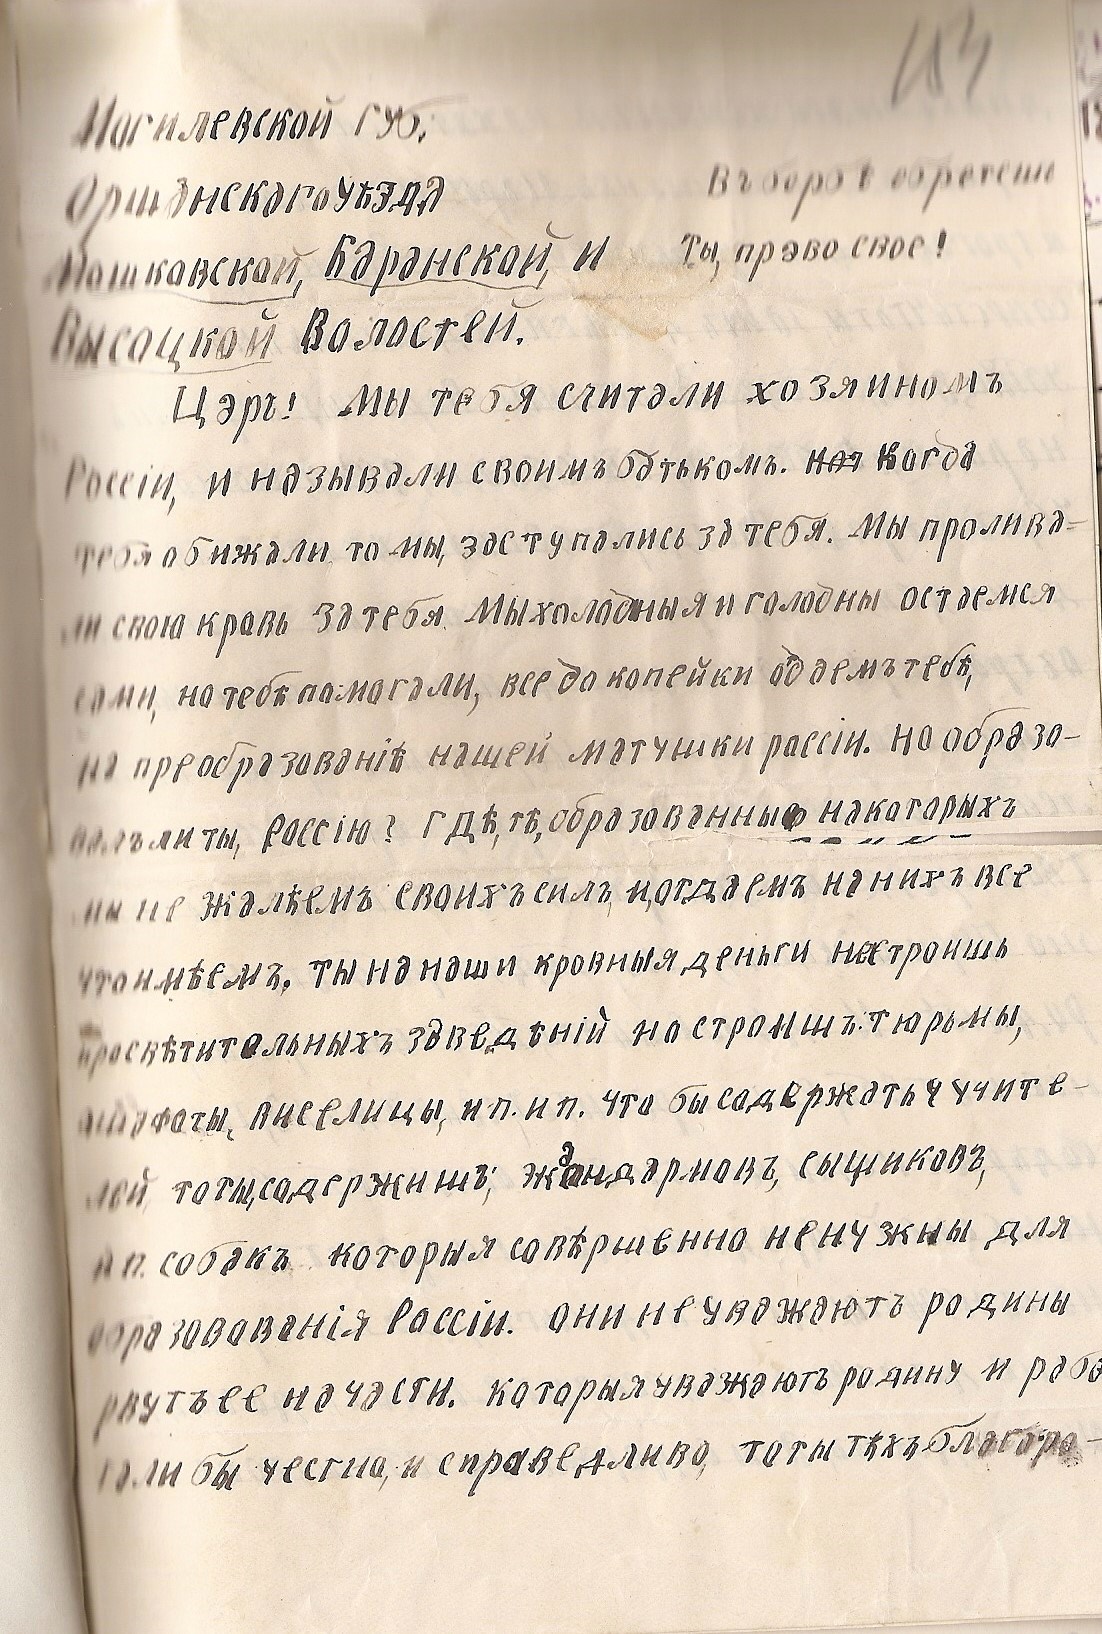 Могилевской Губ.
Оршанскаго Уѣзда
Въ борбѣ обретеши
Машкавской, Баранской, и
Ты, право свое!
Высоцкой Воластей.
Царъ! Мы тебя считали хозяиномъ
Россіи, и называли своимъ батькомъ. Когда
тебя обижали, то мы, заступались за тебя. Мы пролива-
ли свою кровь за тебя. Мы холодныя и голодны остаемся
сами, но тебѣ помагали, все до копейки оддемъ тебѣ,
на преобразованіѣ нашей матушки рассіи. Но образо-
валъ ли ты, Рассію? Гдѣ, тѣ, образованные на каторыхъ
мы не жалѣемъ своихъ силъ, и, отдаемъ на нихъ все
что имѣемъ. Ты на наши кровныя деньги не строишь
просвѣтительныхъ заведѣній но строишъ тюрьмы,
эшафоты, висѣлицы, и п. и п. Что бы содержать учите-
лей, то ты, содержишъ; жандармовъ, сыщиковъ,
и п. собакъ которыя совѣршенно не нужны для
образования Рассіи. Они не уважаютъ родины
рвутъ ее на части. Которыя уважаютъ родину и рабо
тали бы честно, и справедливо, то ты тѣхъ благоро-